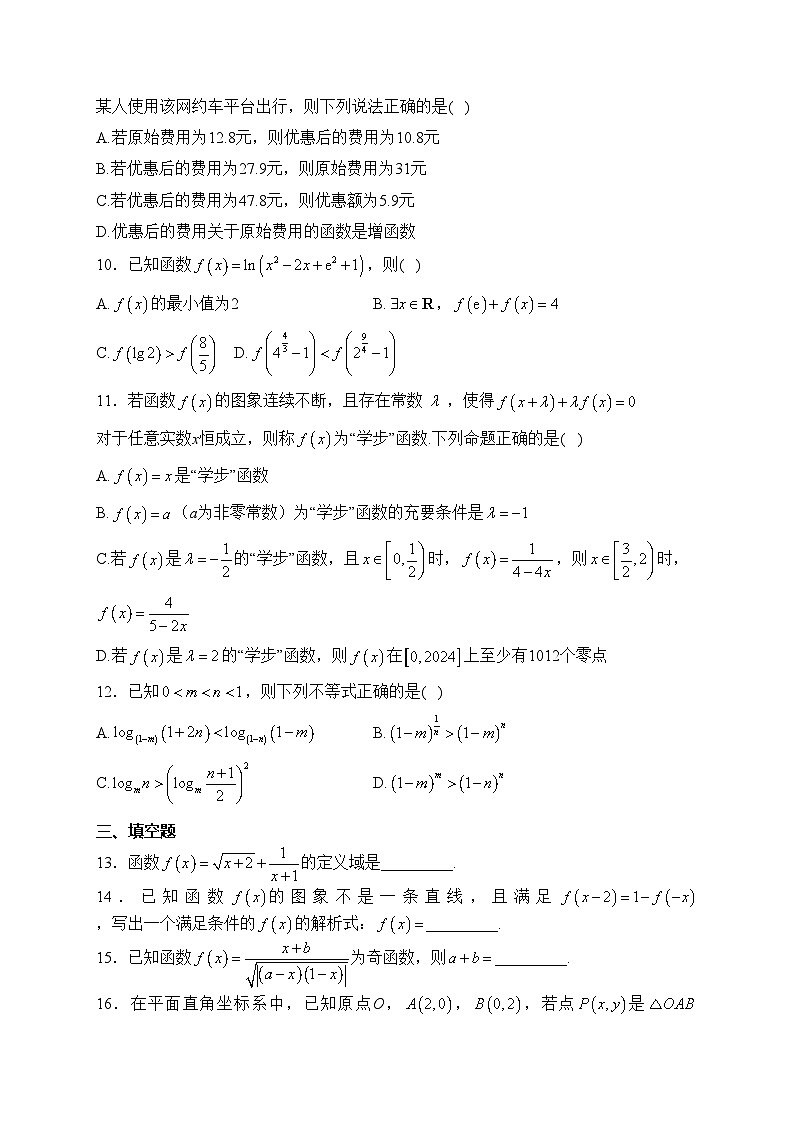 某人使用该网约车平台出行，则下列说法正确的是(   )
A.若原始费用为12.8元，则优惠后的费用为10.8元
B.若优惠后的费用为27.9元，则原始费用为31元
C.若优惠后的费用为47.8元，则优惠额为5.9元
D.优惠后的费用关于原始费用的函数是增函数
10．已知函数 f(x)=ln(x²−2x+e²+1)，则(   )
A. f(x)的最小值为2    B. ∃x∈R，f(e)+f(x)=4
C. f(lg2)>f(8/5)    D. f(4^(4/3)−1)<f(2^(9/4)−1)
11．若函数 f(x)的图象连续不断，且存在常数 λ ，使得 f(x+λ)+λf(x)=0
对于任意实数x恒成立，则称 f(x)为“学步”函数.下列命题正确的是(   )
A. f(x)=x是“学步”函数
B. f(x)=a（a为非零常数）为“学步”函数的充要条件是λ=−1
C.若 f(x)是λ=−1/2的“学步”函数，且x∈[0,1/2)时，f(x)=1/(4−4x)，则x∈[3/2,2)时，
f(x)=4/(5−2x)
D.若 f(x)是λ=2的“学步”函数，则 f(x)在[0,2024]上至少有1012个零点
12．已知0<m<n<1，则下列不等式正确的是(   )
A. log_(1−m)(1+2n)<log_(1−n)(1−m)    B. (1−m)^(1/n)>(1−m)^n
C. log_m n>(log_m (n+1)/2)²    D. (1−m)^m>(1−n)^n
三、填空题
13．函数 f(x)=√(x+2)+1/(x+1)的定义域是_________.
14．已知函数 f(x)的图象不是一条直线，且满足 f(x−2)=1−f(−x)
，写出一个满足条件的 f(x)的解析式：f(x)=_________.
15．已知函数 f(x)=(x+b)/√|(a−x)(1−x)|为奇函数，则a+b=_________.
16．在平面直角坐标系中，已知原点O，A(2,0)，B(0,2)，若点P(x,y)是△OAB